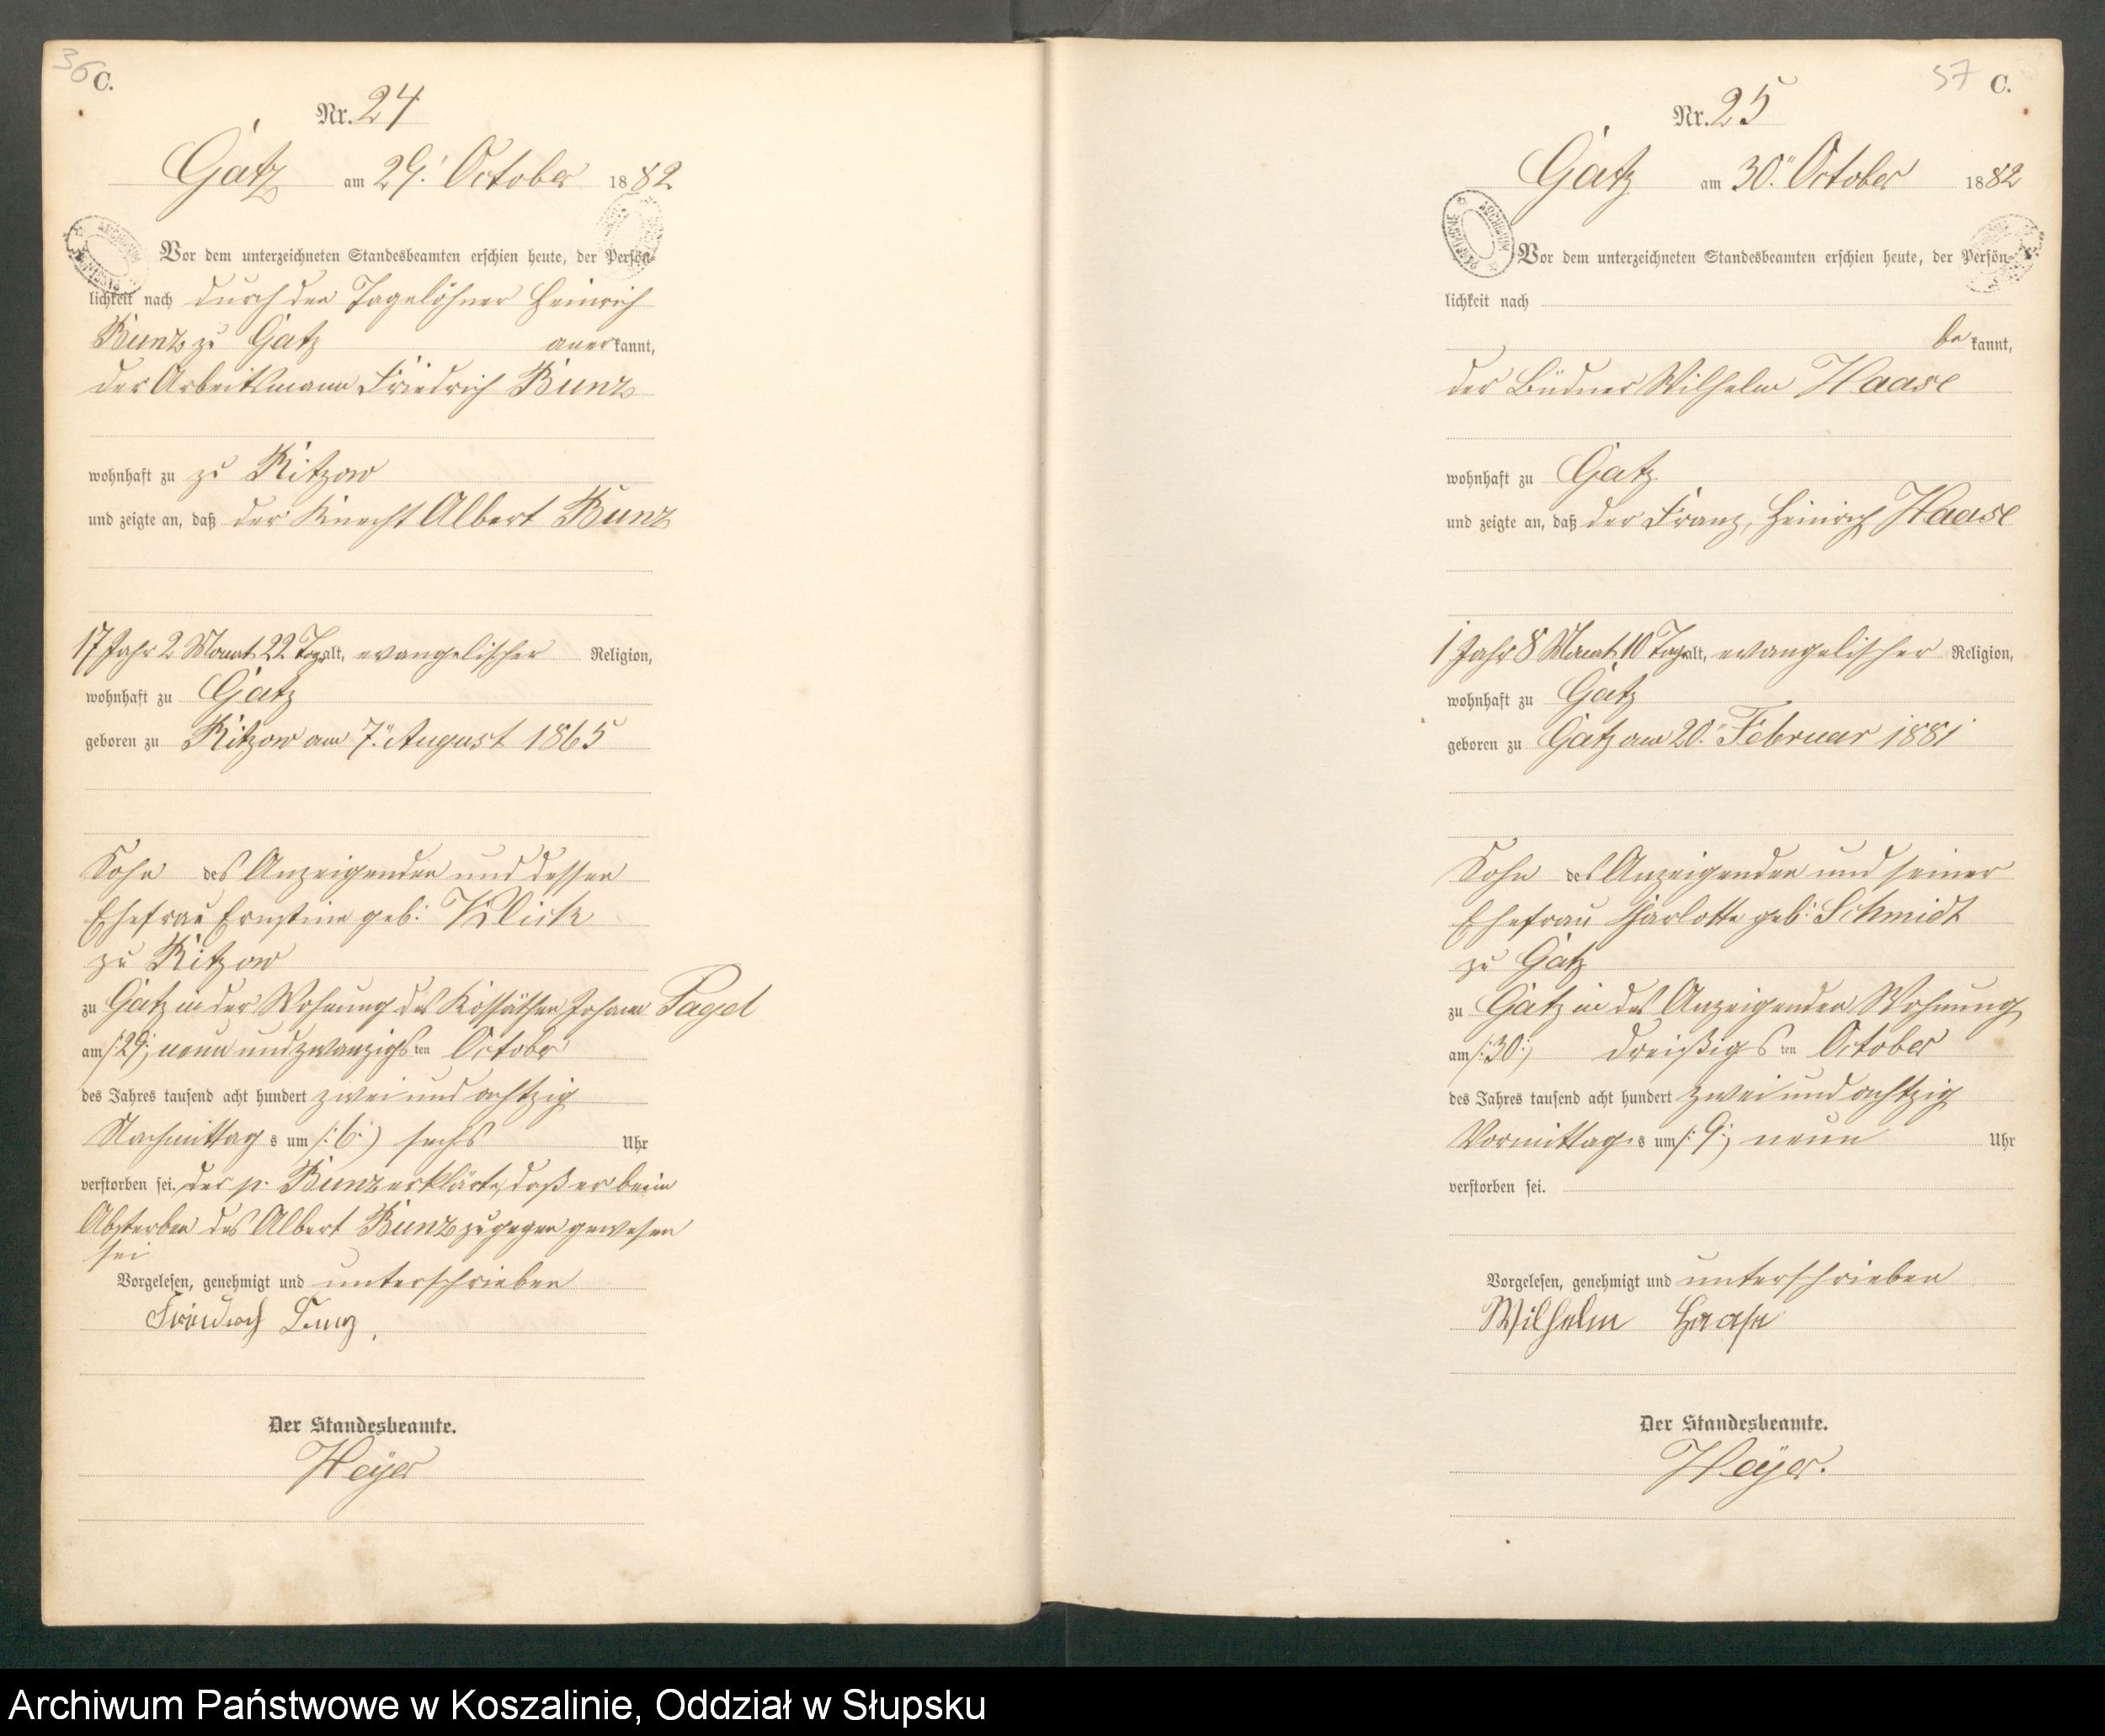 36
C.
Nr. 24
Gatz am 29. October 1882
Vor dem unterzeichneten Standesbeamten erschien heute, der Persön-
lichkeit nach durch den Tagelöhner Heinrich
Bunz zu Gatz anerkannt,
der Arbeitsmann Friedrich Bunz
wohnhaft zu zu Ritzow
und zeigte an, daß der Knecht Albert Bunz
17 Jahr 2 Monat 22 Tag alt, evangelischer Religion,
wohnhaft zu Gatz
geboren zu Ritzow am 7. August 1865
Sohn des Anzeigenden und dessen
Ehefrau Ernstine geb: Klick
zu Ritzow
zu Gatz in der Wohnung des Kossäthen Johann Pagel
am /:29:/ neun und zwanzigsten October
des Jahres tausend acht hundert zwei und achtzig
Nachmittags um /:6:/ sechs Uhr
verstorben sei. der p. Bunz erklärte, daß er beim
Absterben des Albert Bunz zugegen gewesen
sei
Vorgelesen, genehmigt und unterschrieben
Friedrich Bunz
Der Standesbeamte.
Heyer
57
C.
Nr. 25
Gatz am 30. October 1882
Vor dem unterzeichneten Standesbeamten erschien heute, der Persön-
lichkeit nach
bekannt,
der Büdner Wilhelm Haase
wohnhaft zu Gatz
und zeigte an, daß der Franz, Heinrich Haase
1 Jahr 8 Monat 10 Tag alt, evangelischer Religion,
wohnhaft zu Gatz
geboren zu Gatz am 20. Februar 1881
Sohn des Anzeigenden und seiner
Ehefrau Charlotte geb: Schmidt
zu Gatz
zu Gatz in des Anzeigenden Wohnung
am /:30:/ dreißigsten October
des Jahres tausend acht hundert zwei und achtzig
Vormittags um /:9:/ neun Uhr
verstorben sei.
Vorgelesen, genehmigt und unterschrieben
Wilhelm Haase
Der Standesbeamte.
Heyer.
Archiwum Państwowe w Koszalinie, Oddział w Słupsku